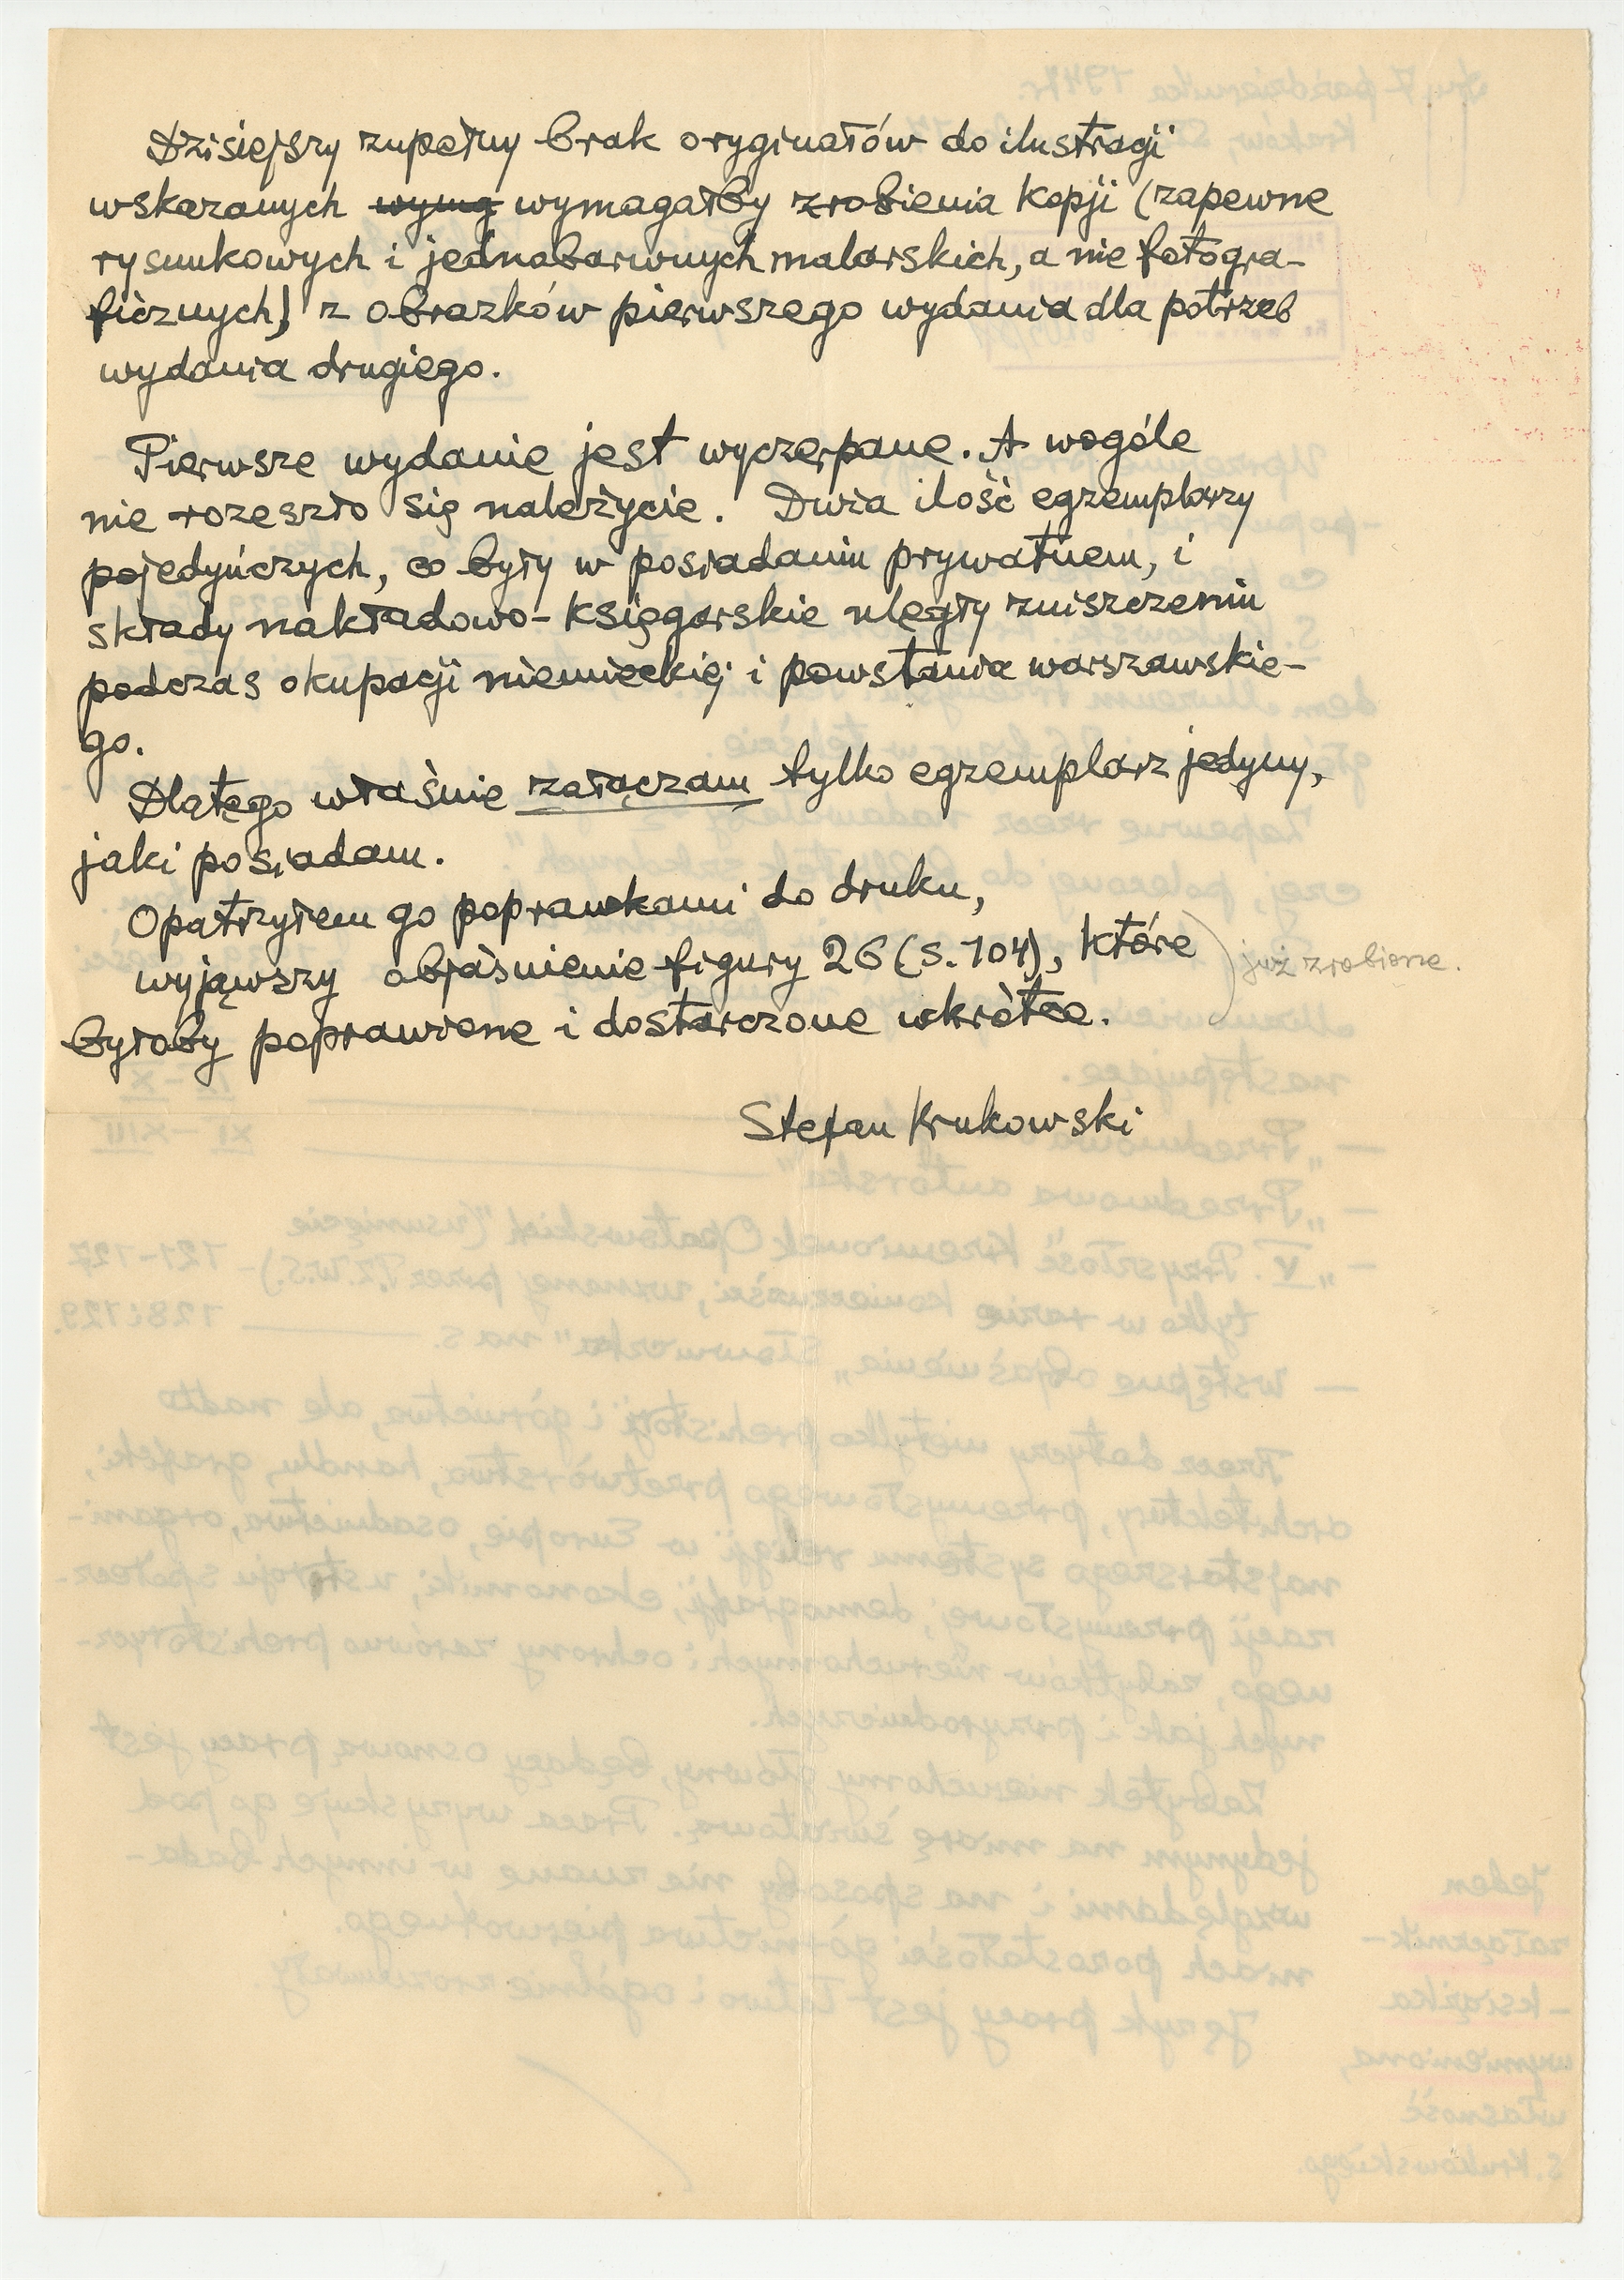 Dzisiejszy zupełny brak oryginałów do ilustracji
wskazanych wymag wymagałby zrobienia kopji (zapewne
rysunkowych i jednobarwnych malarskich, a nie fotogra-
ficznych) z obrazków pierwszego wydania dla potrzeb
wydania drugiego.
Pierwsze wydanie jest wyczerpane. A wogóle
nie rozeszło się należycie. Duża ilość egzemplarzy
pojedyńczych, co były w posiadaniu prywatnem, i
składy nakładowo-księgarskie uległy zniszczeniu
podczas okupacji niemieckiej i powstania warszawskie-
go.
Dlatego właśnie załączam tylko egzemplarz jedyny,
jaki posiadam.
Opatrzyłem go poprawkami do druku,
wyjąwszy objaśnienie figury 26 (s. 104), które
już zrobione.
byłoby poprawione i dostarczone wkrótce.
Stefan Krukowski